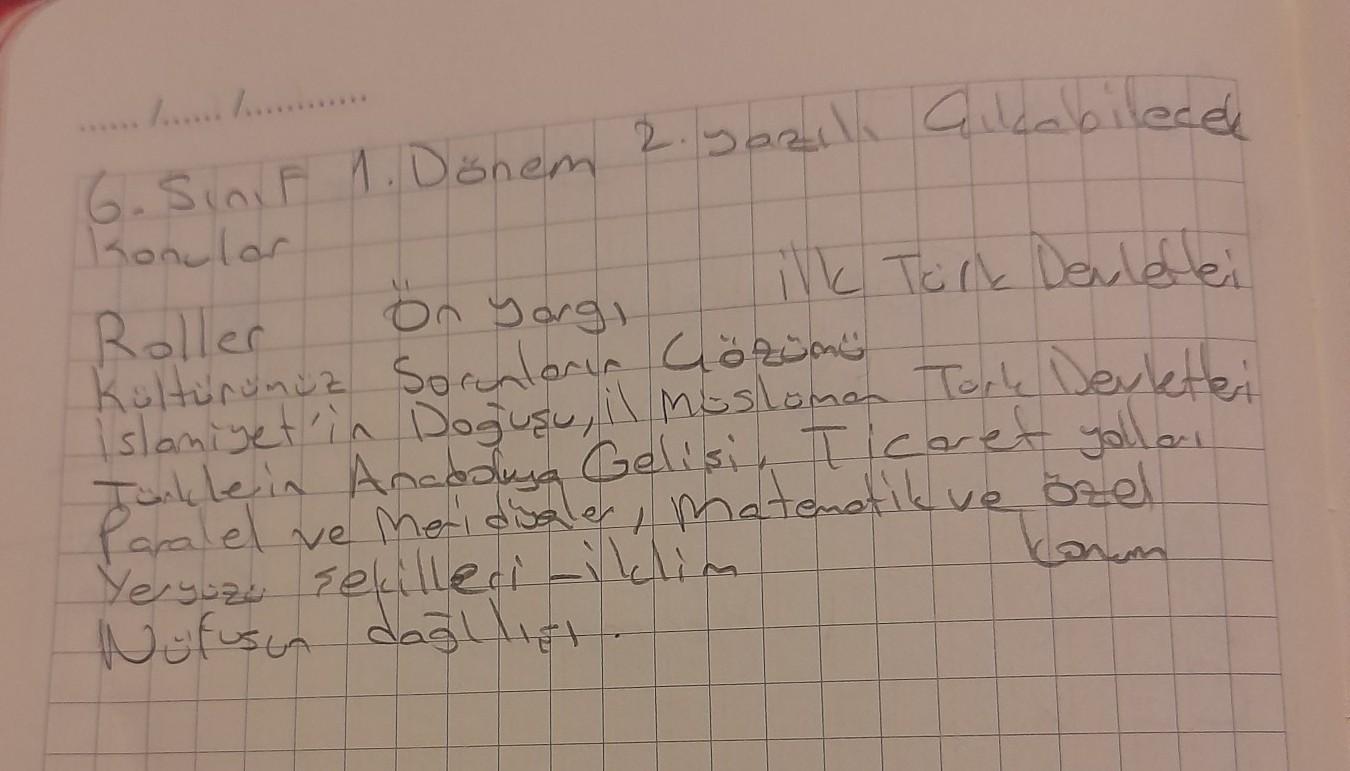 ...... /...... /............
6. Sınıf 1. Dönem 2. yazılı Çıkabilecek
Konular
Roller Ön yargı ilk Türk Devletlei
Kültürümüz Sorunların Çözümü
islamiyet'in Doğuşu, il Müslüman Türk Devletlei
Türklein Anadoluya Gelişi, Ticaret yolları
Paralel ve Meridyaler, Matematik ve özel
Konum
Yeryüzü şekilleri - iklim
Nüfusun dağılışı.